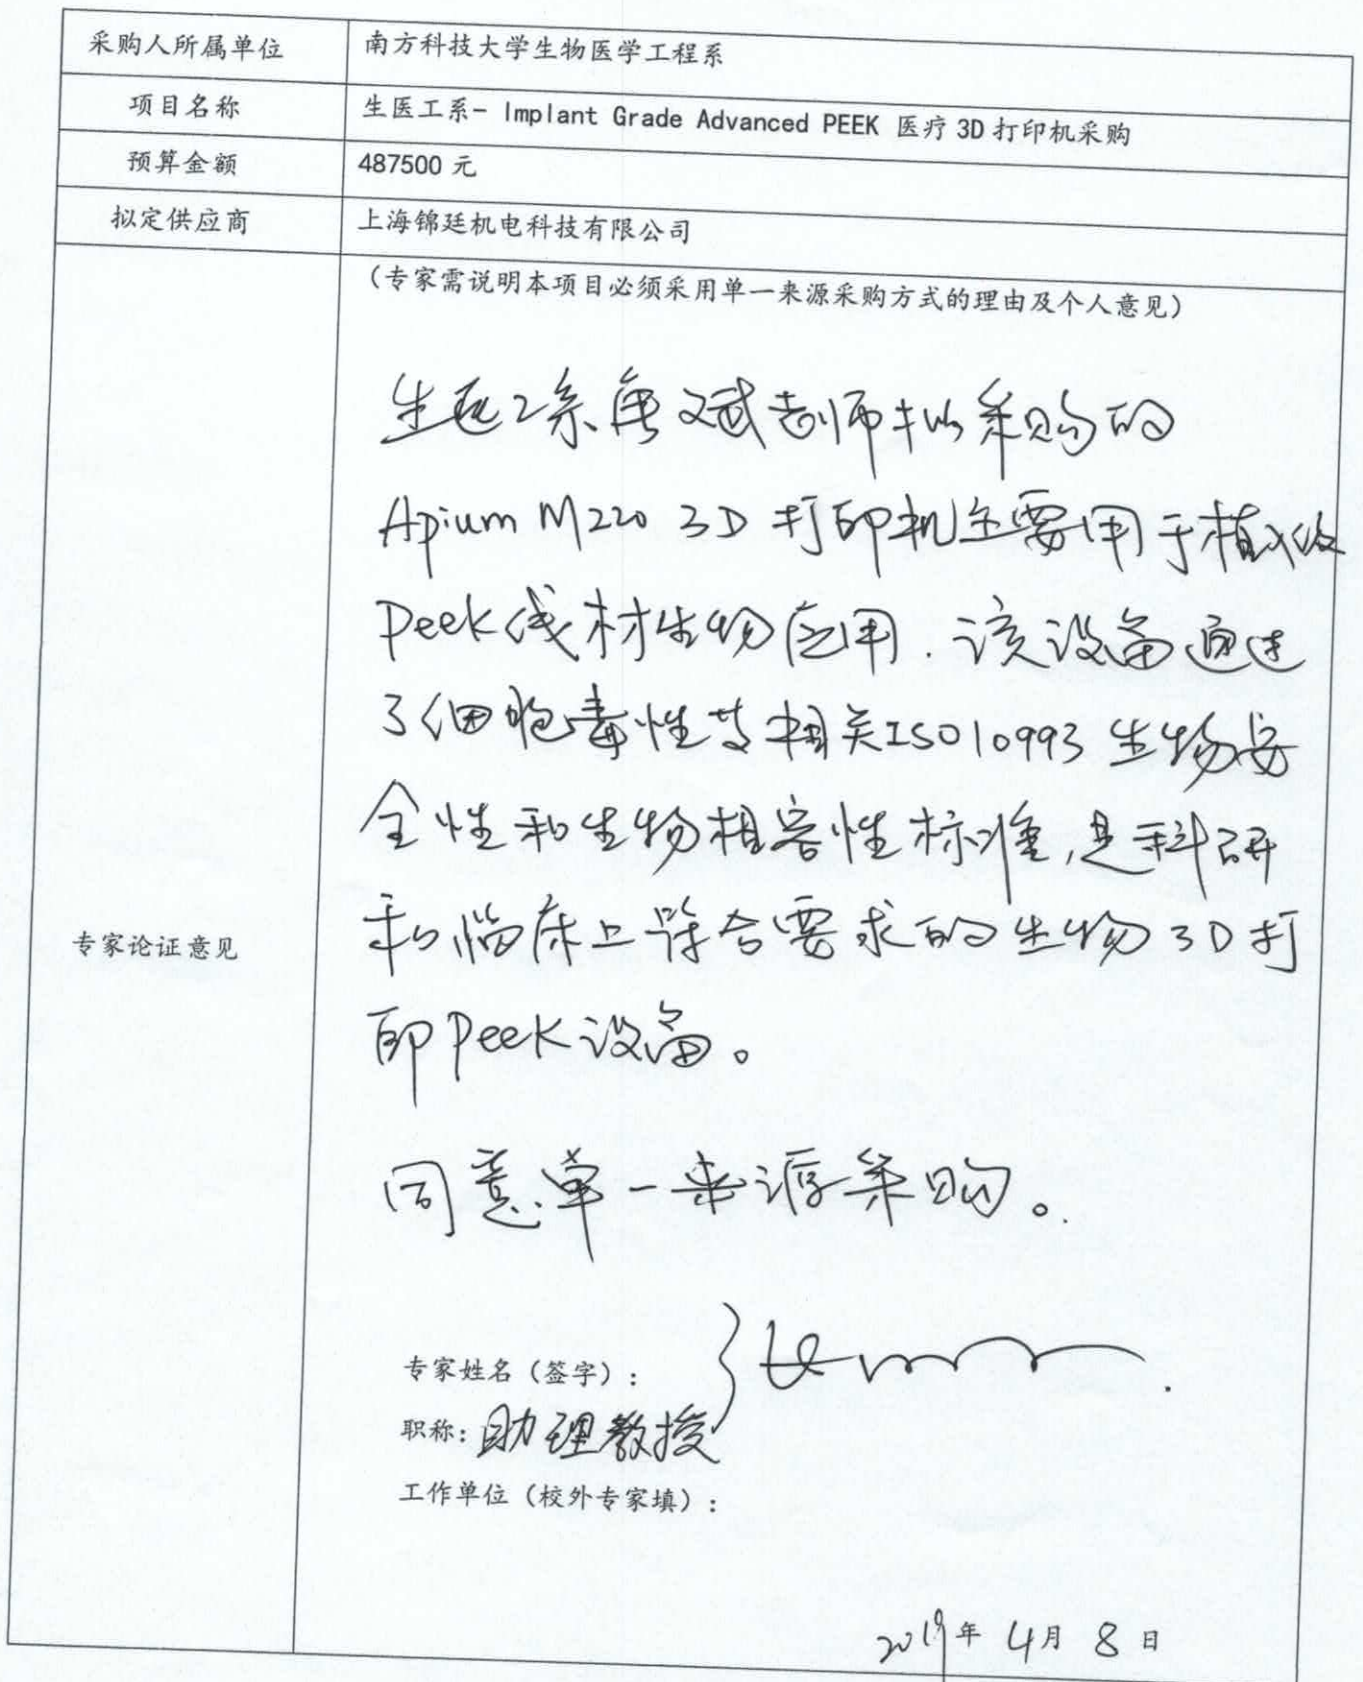 采购人所属单位
南方科技大学生物医学工程系
项目名称
生医工系- Implant Grade Advanced PEEK 医疗 3D 打印机采购
预算金额
487500 元
拟定供应商
上海锦廷机电科技有限公司
专家论证意见
（专家需说明本项目必须采用单一来源采购方式的理由及个人意见）
生医工系 斌老师拟采购的
Apium M220 3D 打印机主要用于植入级
Peek线材生物应用. 该设备通过
了细胞毒性等相关ISO10993 生物安
全性和生物相容性标准,是科研
和临床上符合要求的生物3D打
印Peek设备。
同意单一来源采购。
专家姓名（签字）:
职称: 助理教授
工作单位（校外专家填）:
2019年 4月 8日